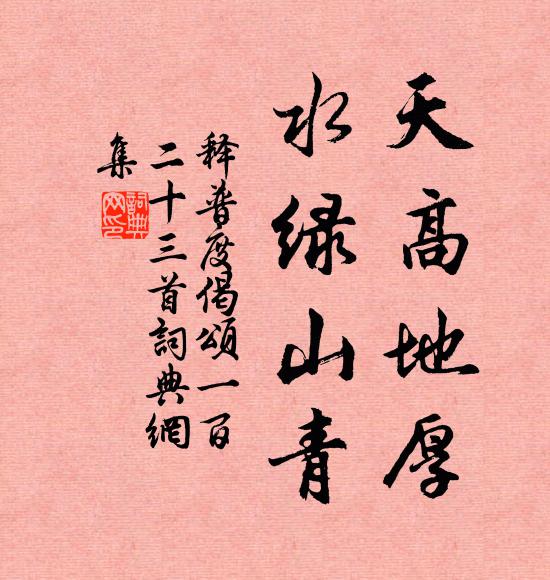 天高地厚
水绿山青
释普度偈頌一百
二十三首詞典網
集
詞典網印